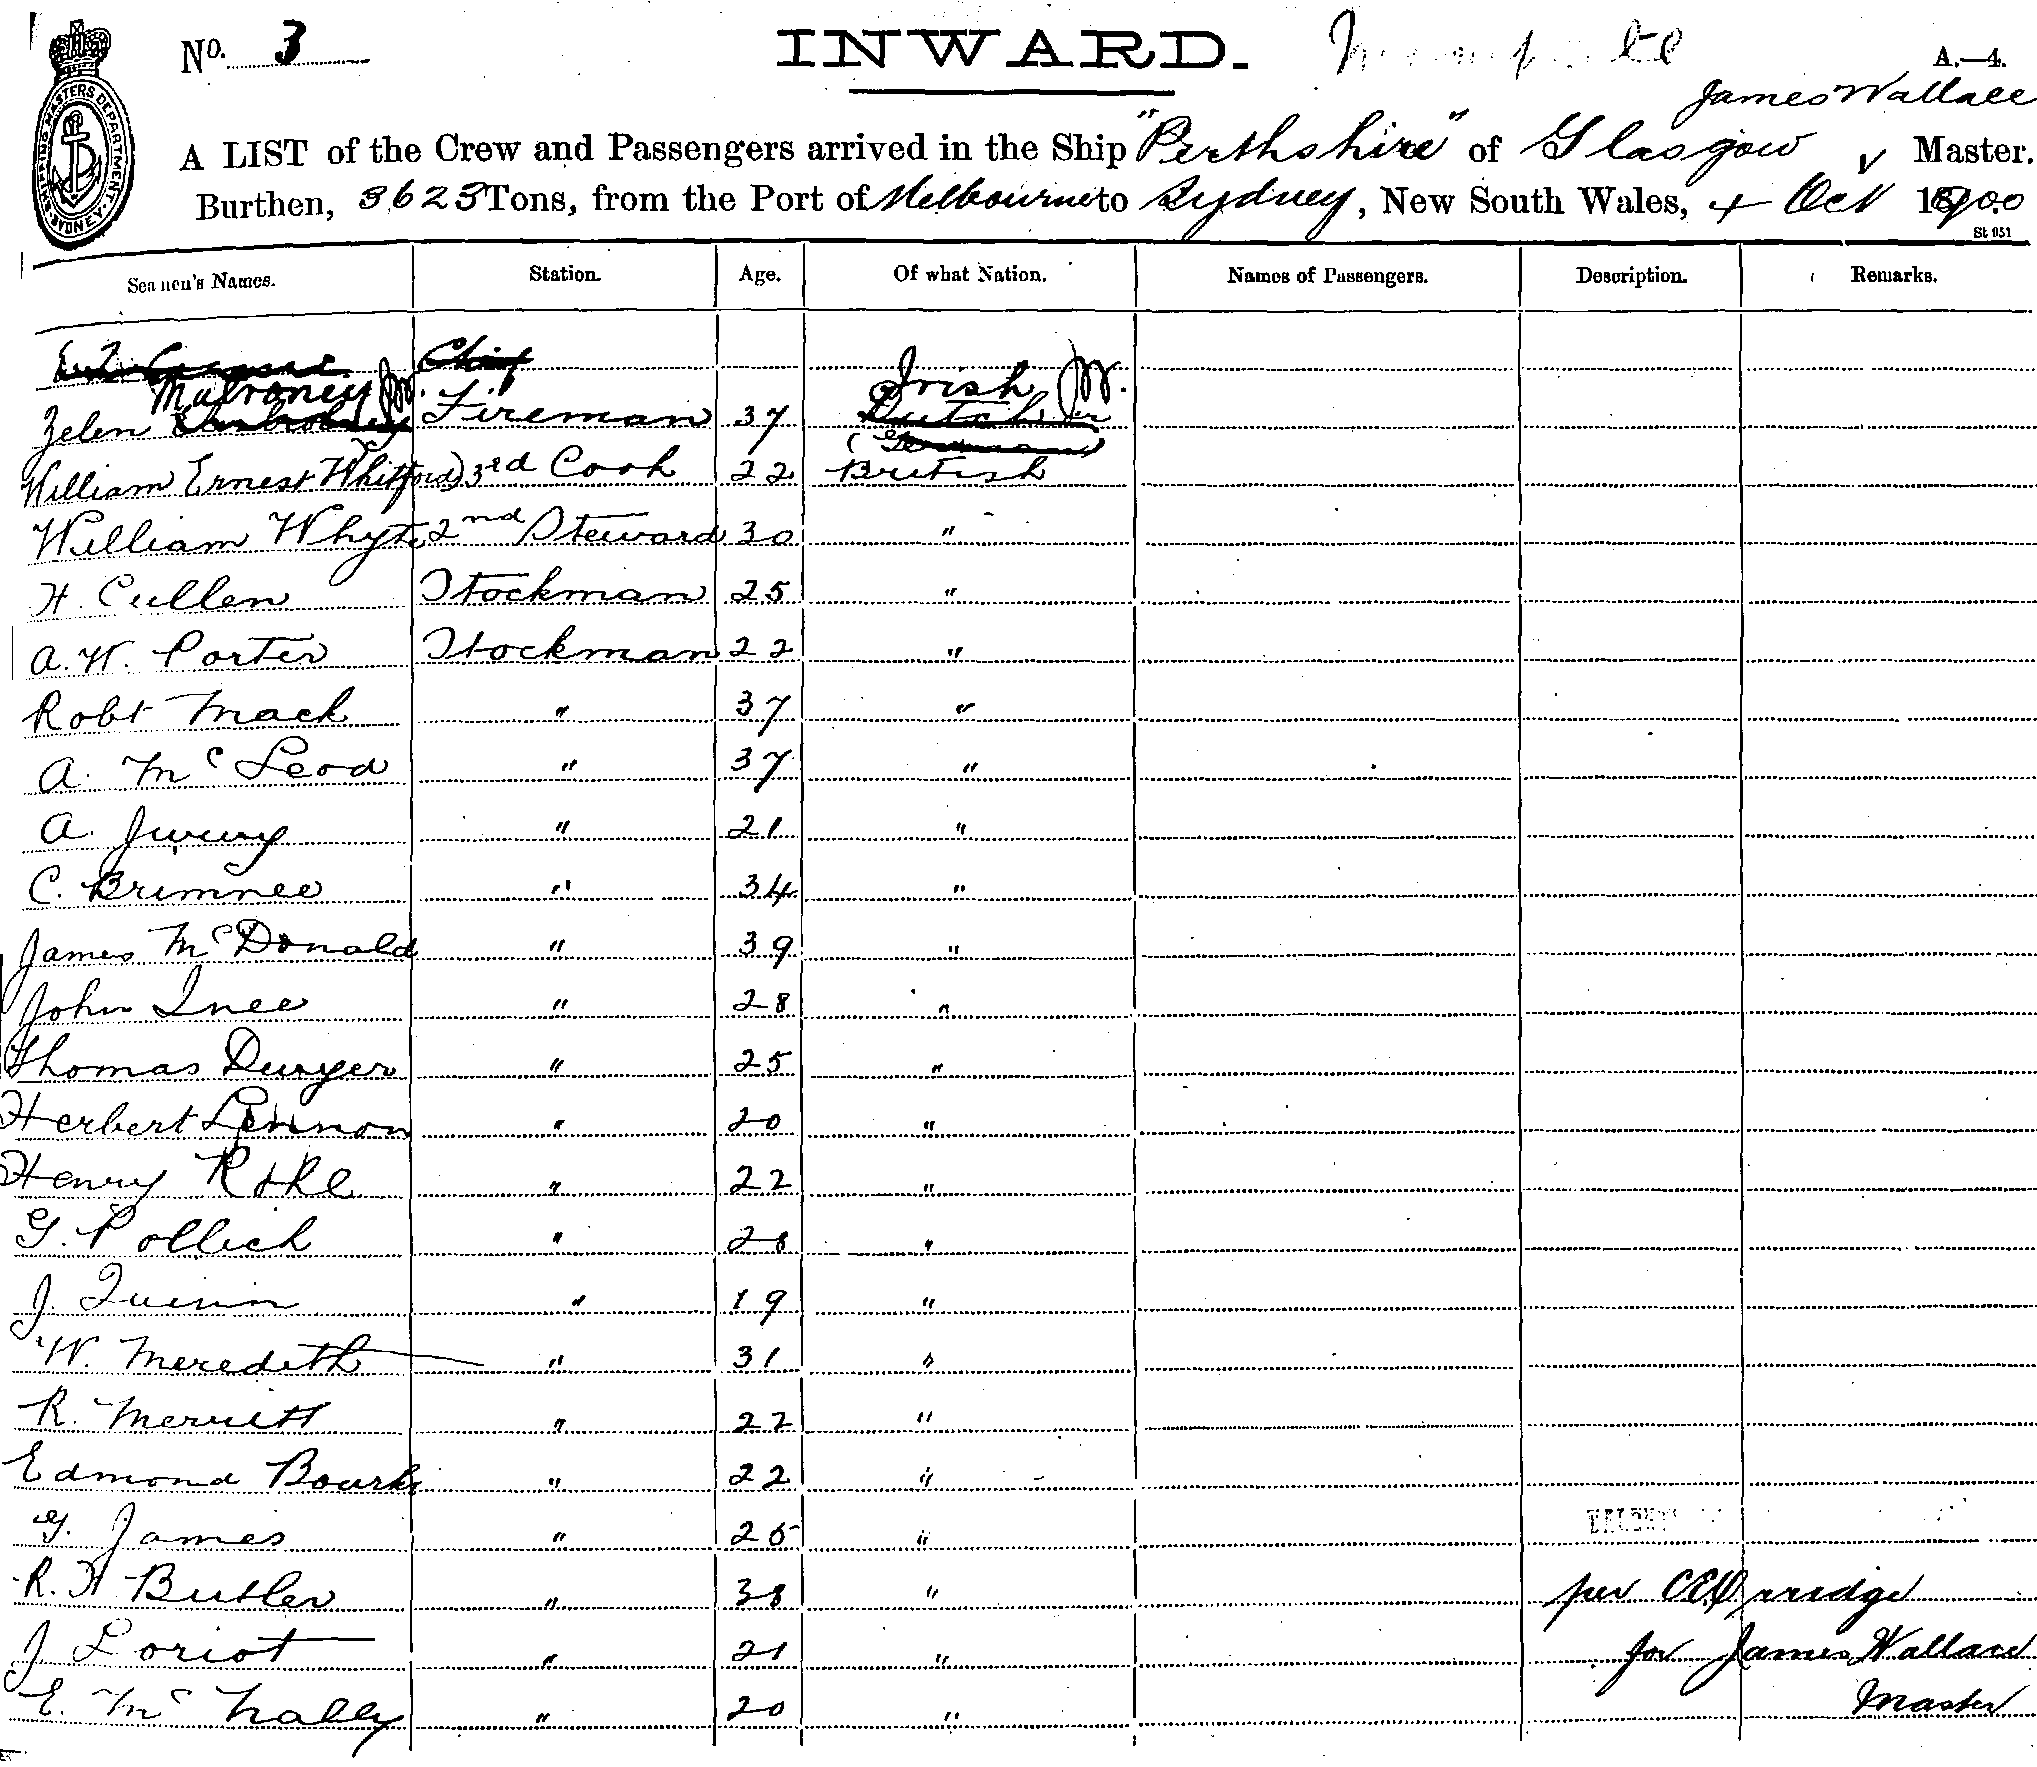 No. 3
INWARD.
A.—4.
James Wallace
SHIPPING MASTERS DEPARTMENT SYDNEY
A LIST of the Crew and Passengers arrived in the Ship "Perthshire" of Glasgow, Master.
Burthen, 3623 Tons, from the Port of Melbourne to Sydney, New South Wales, 4 Oct 1900
St 051
Seamen's Names. Station. Age. Of what Nation. Names of Passengers. Description. Remarks.
Chief
Mulroney Irish
Zelen Fireman 37 Dutch
(German)
William Ernest Whitford 3rd Cook 22 British
William Whyte 2nd Steward 30 "
H. Cullen Stockman 25 "
A. W. Porter Stockman 22 "
Robt Mack " 37 "
A. McLeod " 37 "
A. " 21 "
C. Brimnee " 34 "
James McDonald " 39 "
John Inee " 28 "
Thomas Dwyer " 25 "
Herbert Lennon " 20 "
Henry " 22 "
G. Pollick " 28 "
J. Quinn " 19 "
W. Meredith " 31 "
R. Merritt " 22 "
Edmond Bourke " 22 "
G. James " 25 "
R. H Butler " 38 " per
J Loriot " 21 " for James Wallace
E. McNally " 20 " Master